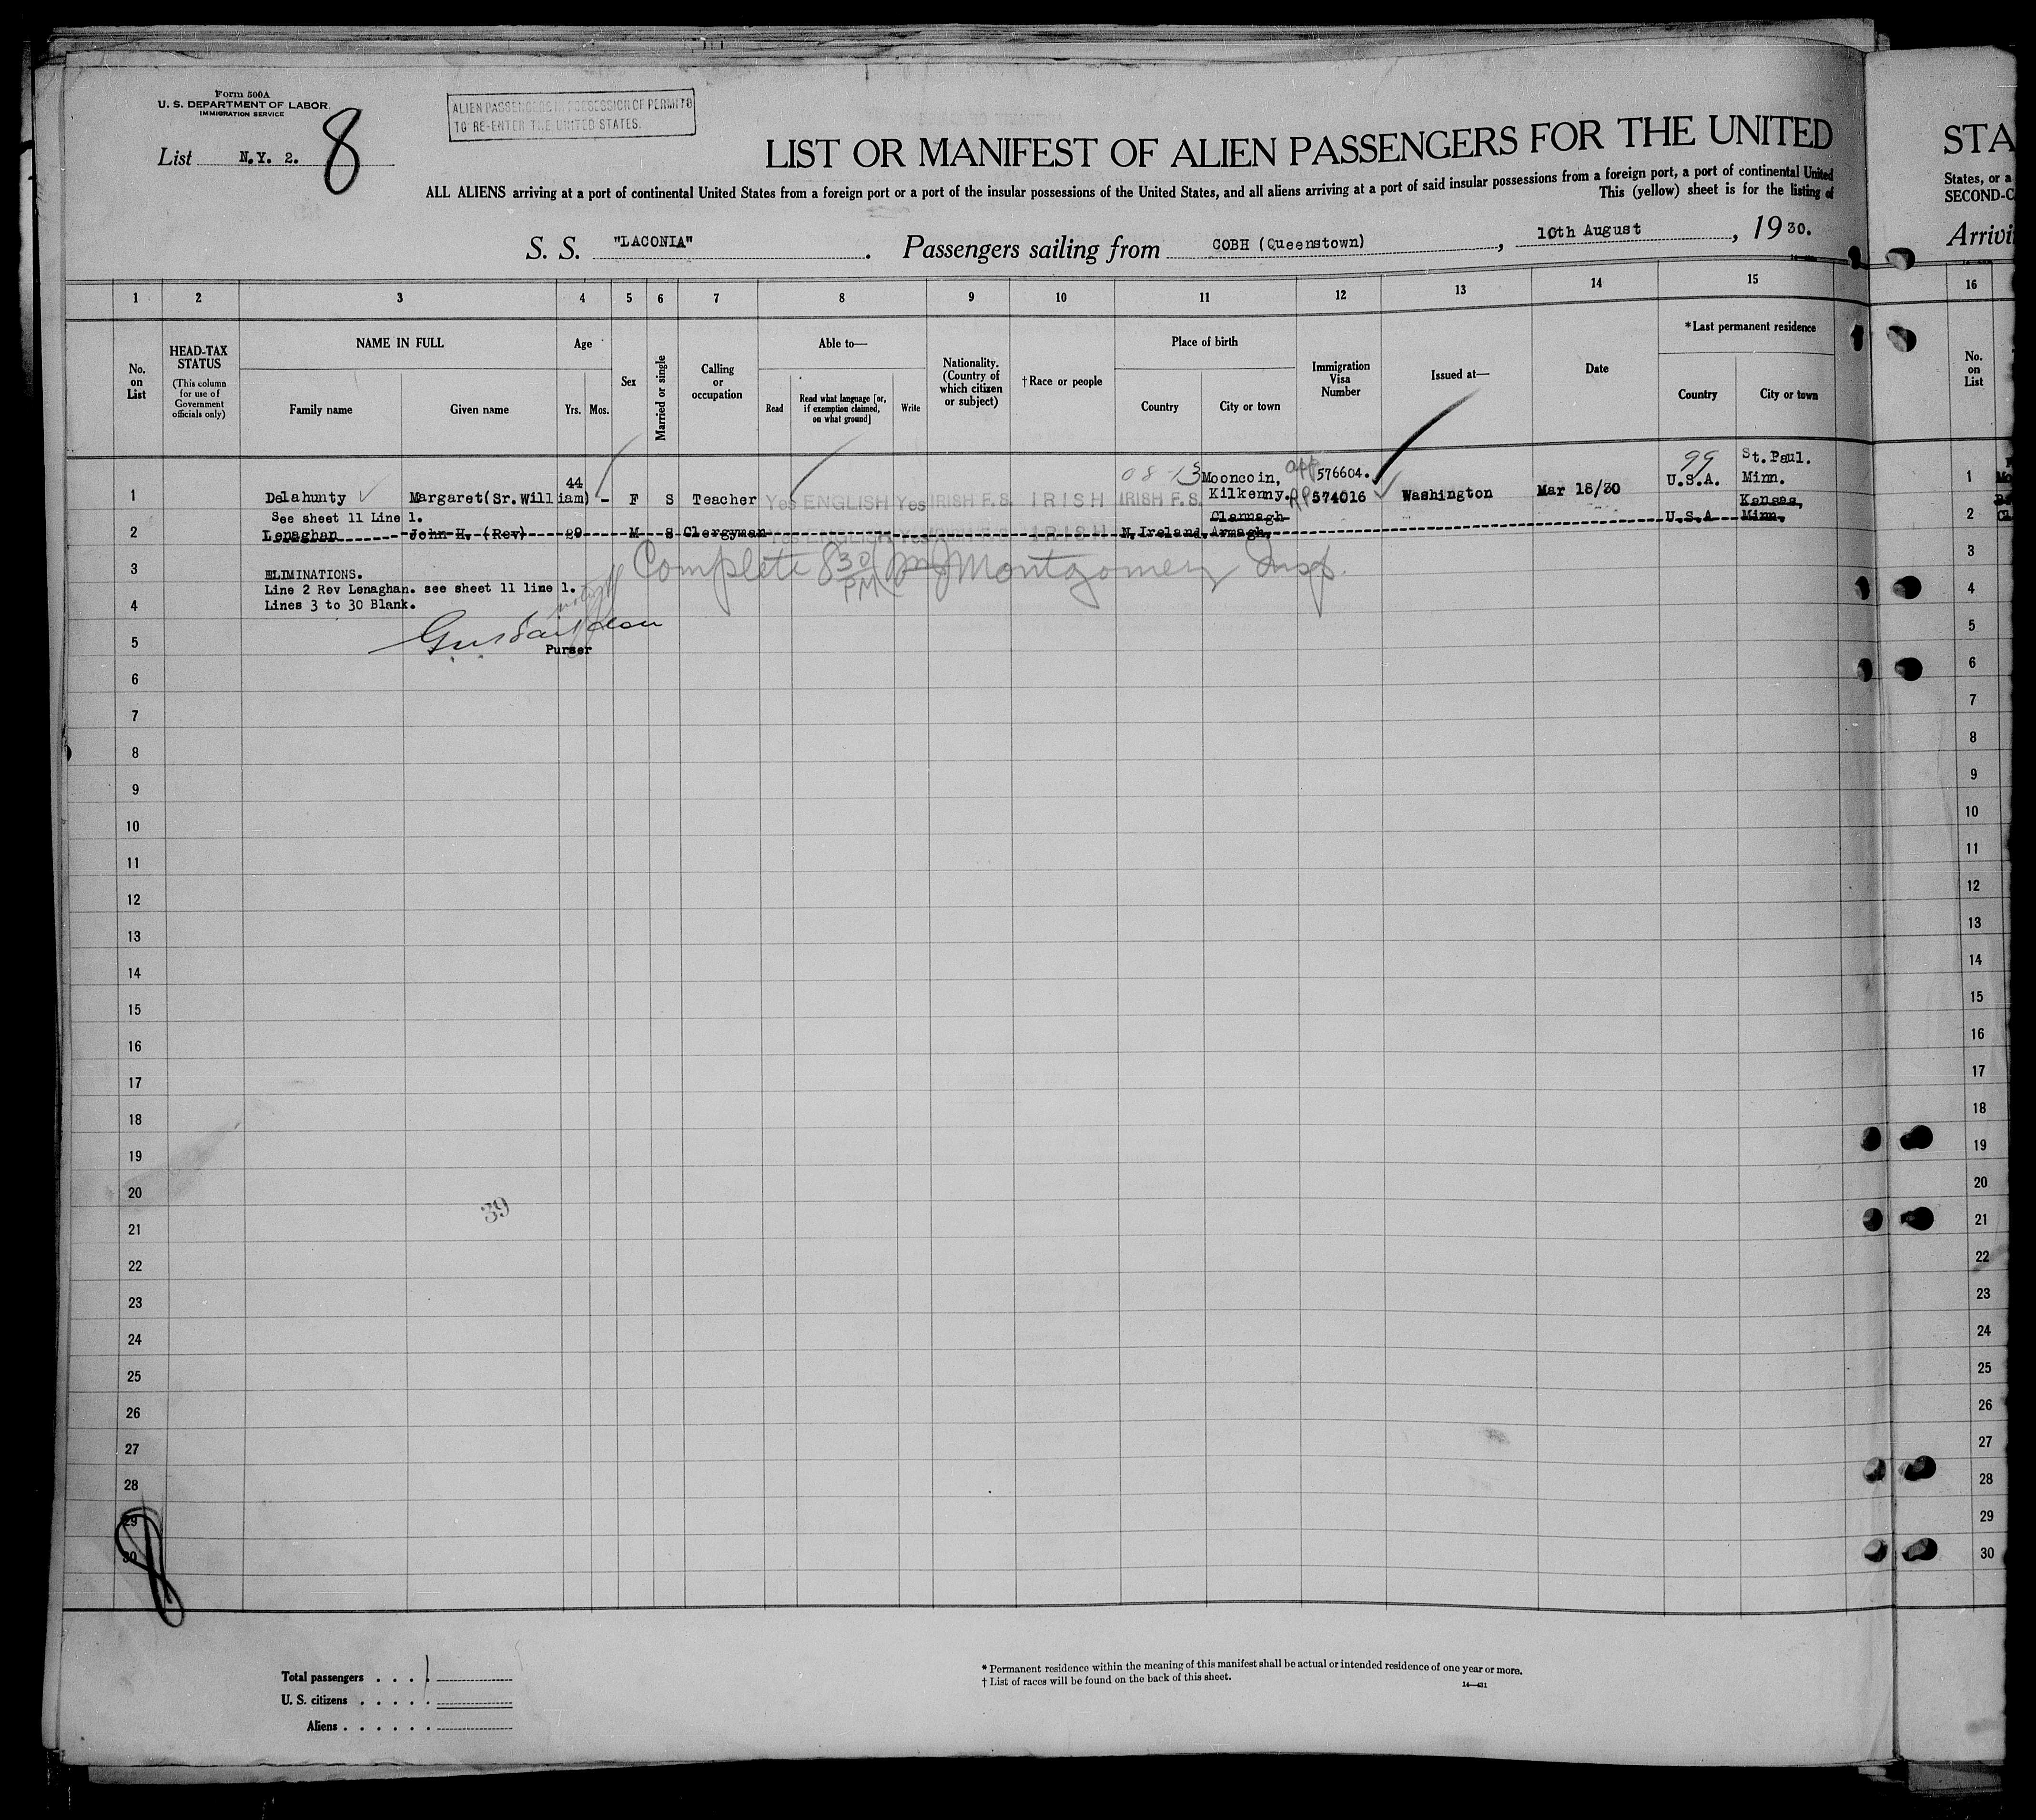 Form 500A
U. S. DEPARTMENT OF LABOR
IMMIGRATION SERVICE
List N.Y. 2. 8
ALIEN PASSENGERS IN POSSESSION OF PERMITS
TO RE-ENTER THE UNITED STATES.
LIST OR MANIFEST OF ALIEN PASSENGERS FOR THE UNITED
STA
ALL ALIENS arriving at a port of continental United States from a foreign port or a port of the insular possessions of the United States, and all aliens arriving at a port of said insular possessions from a foreign port, a port of continental United
States, or a
This (yellow) sheet is for the listing of
SECOND-C
S. S. "LACONIA". Passengers sailing from COBH (Queenstown), 10th August, 1930.
Arrivi
1 2 3 4 5 6 7 8 9 10 11 12 13 14 15 16
No. on List
HEAD-TAX STATUS
(This column for use of Government officials only)
NAME IN FULL
Family name
Given name
Age
Yrs. Mos.
Sex
Married or single
Calling or occupation
Able to—
Read
Read what language [or, if exemption claimed, on what ground]
Write
Nationality. (Country of which citizen or subject)
†Race or people
Place of birth
Country
City or town
Immigration Visa Number
Issued at—
Date
*Last permanent residence
Country
City or town
No. on List
1 Delahunty Margaret(Sr.William) 44 - F S Teacher Yes ENGLISH Yes IRISH F.S. IRISH IRISH F.S. Mooncoin, Kilkenny. 576604. 574016 Washington Mar 18/30 99 U.S.A. St.Paul. Minn. 1
08-13
See sheet 11 Line 1.
2 Lenaghan John H. (Rev) M S Clergyman Yes ENGLISH Yes IRISH F.S. IRISH N.Ireland. Clannagh Armagh. U.S.A Kansas, Minn, 2
Complete 8 30 PM Montgomery Insp.
3 ELIMINATIONS. 3
Line 2 Rev Lenaghan. see sheet 11 line 1.
4 Lines 3 to 30 Blank. 4
5 Purser 5
6 6
7 7
8 8
9 9
10 10
11 11
12 12
13 13
14 14
15 15
16 16
17 17
18 18
19 19
20 20
39
21 21
22 22
23 23
24 24
25 25
26 26
27 27
28 28
29 29
30 30
8
Total passengers . . . . 1
U. S. citizens . . . . .
Aliens . . . . . .
* Permanent residence within the meaning of this manifest shall be actual or intended residence of one year or more.
† List of races will be found on the back of this sheet.
14—431